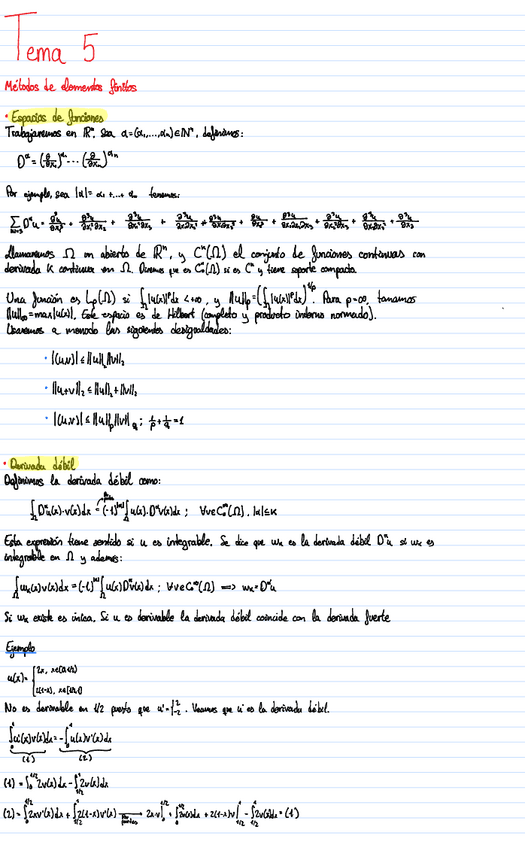 Tema 5
Métodos de elementos finitos
• Espacios de funciones
Trabajaremos en ℝⁿ. Sea α=(α₁,...,αₙ)∈ℕⁿ, definimos:
D^α = (∂/∂x₁)^α₁ ... (∂/∂xₙ)^αₙ
Por ejemplo, sea |α| = α₁+...+αₙ tenemos:
Llamaremos Ω un abierto de ℝⁿ, y Cᵏ(Ω) el conjunto de funciones continuas con
derivada K continua en Ω. Diremos que es C₀ᵏ(Ω) si es Cᵏ y tiene soporte compacto.
Una función es Lp(Ω) si ∫_Ω |u(x)|ᵖ dx < +∞, y ||u||p = (∫_Ω |u(x)|ᵖ dx)^(1/p). Para p=∞, tomamos
||u||∞ = max|u(x)|. Este espacio es de Hilbert (completo y producto interno normado).
Usaremos a menudo las siguientes desigualdades:
• |(u,v)| ≤ ||u||₂||v||₂
• ||u+v||₂ ≤ ||u||₂ + ||v||₂
• |(u,v)| ≤ ||u||p ||v||q ; 1/p + 1/q = 1
• Derivada débil
Definimos la derivada débil como:
∫_Ω D^α u(x)·v(x)dx = (-1)^|α| ∫_Ω u(x)·D^α v(x)dx ; ∀v∈C₀^∞(Ω), |α|≤K
Esta expresión tiene sentido si u es integrable. Se dice que wα es la derivada débil D^α u si wα es
integrable en Ω y además:
∫_Ω wα(x)v(x)dx = (-1)^|α| ∫_Ω u(x)D^α v(x)dx ; ∀v∈C₀^∞(Ω) ⟹ wα = D^α u
Si wα existe es única. Si u es derivable la derivada débil coincide con la derivada fuerte
Ejemplo
u(x) = { 2x, x∈[0,1/2)
2(1-x), x∈[1/2,1]
No es derivable en 1/2 puesto que u' = {2 -2. Veamos que u' es la derivada débil.
∫₀¹ u'(x)v(x)dx = -∫₀¹ u(x)v'(x)dx
(1) (2)
(1) = ∫₀^(1/2) 2v(x)dx - ∫_(1/2)^1 2v(x)dx
(2) = ∫₀^(1/2) 2xv'(x)dx + ∫_(1/2)^1 2(1-x)v'(x)